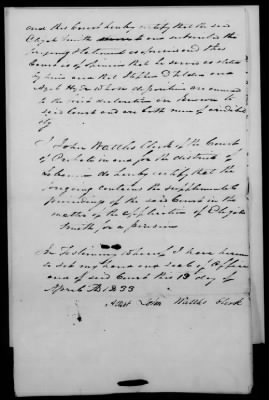 and this Court hereby certify that the said
Elijah Smith who subscribed the
foregoing Statement as sworn and this
Court are of opinion that he serve as stated
by him and that Stephen D
Azel Hyde whose deposition are annexed
to the said declaration are known to
said Court and are both men of credibil
ity
I John Wattles Clerk of the Court
of Probate in and for the district of
Lebanon do hereby certify that the
foregoing contains the supplementale
proceedings of the said Court in the
matter of the application of Elijah
Smith for a pension
In Testimony whereof I have hereun
to set my hand and seal of office
and of said Court this 13 day of
April AD 1833
Attest John Wattles Clerk